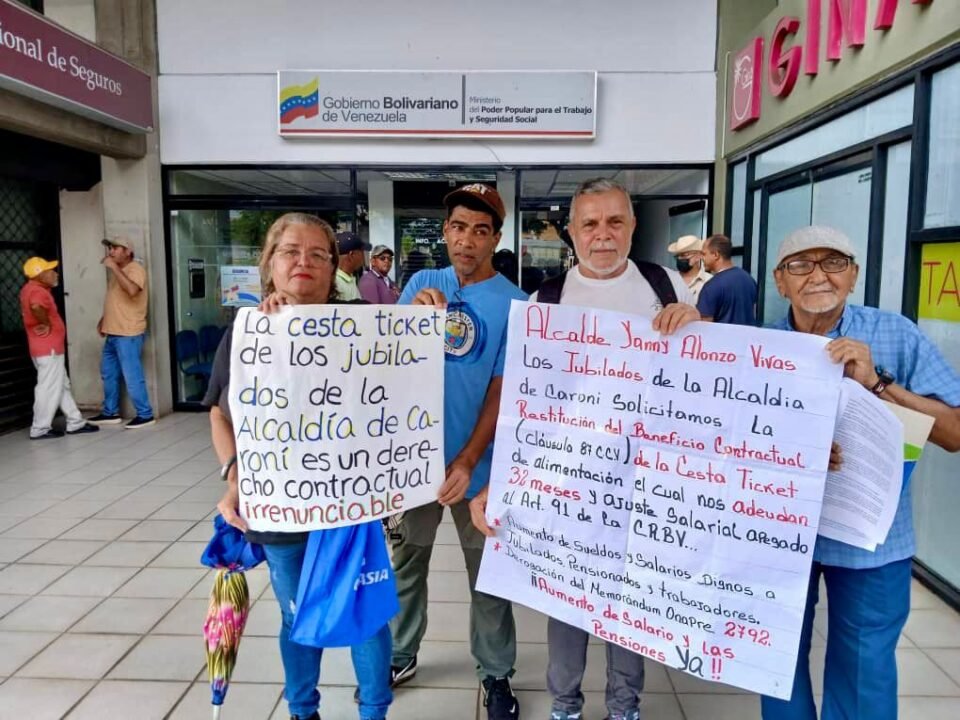 ional de Seguros
Gobierno Bolivariano
de Venezuela
Ministerio
del Poder Popular para el Trabajo
y Seguridad Social
GINA
La cesta ticket
de los jubila-
dos de la
Alcaldía de Ca-
roní es un dere-
cho contractual
irrenunciable
Alcalde Yanny Alonzo Vivas
Los Jubilados de La Alcaldia
de Caroni Solicitamos La
Restitución del Beneficio Contractual
(cláusula 87 CCV) de la Cesta Ticket
de alimentación el cual nos adeudan
32 meses y ajuste Salarial apegado
al Art. 91 de la C.R.B.V...
* Aumento de Sueldos y Salarios Dignos a
Jubilados, Pensionados y trabajadores.
* Derogación del Memorándum Onapre 2792.
¡¡Aumento de Salario y las
Pensiones Ya!!
ASIA
TA